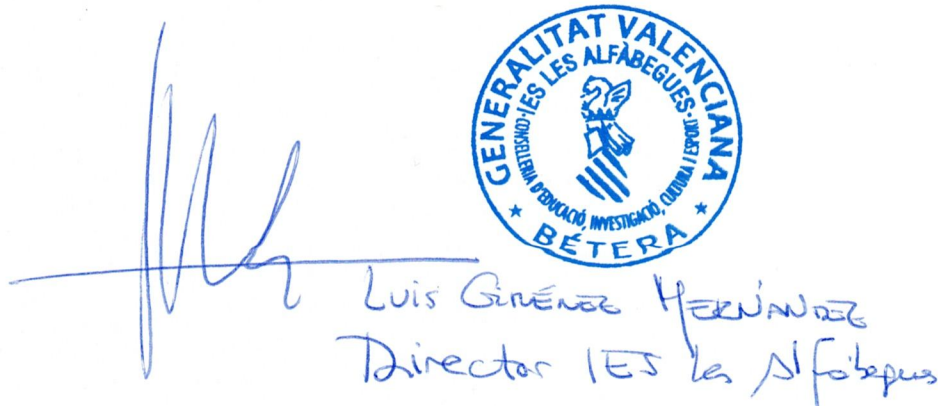 GENERALITAT VALENCIANA
·IES LES ALFÀBEGUES·
CONSELLERIA D'EDUCACIÓ, INVESTIGACIÓ, CULTURA I ESPORT
★ BÉTERA ★
Luis Giménez Hernández
Director IES les Alfàbegues